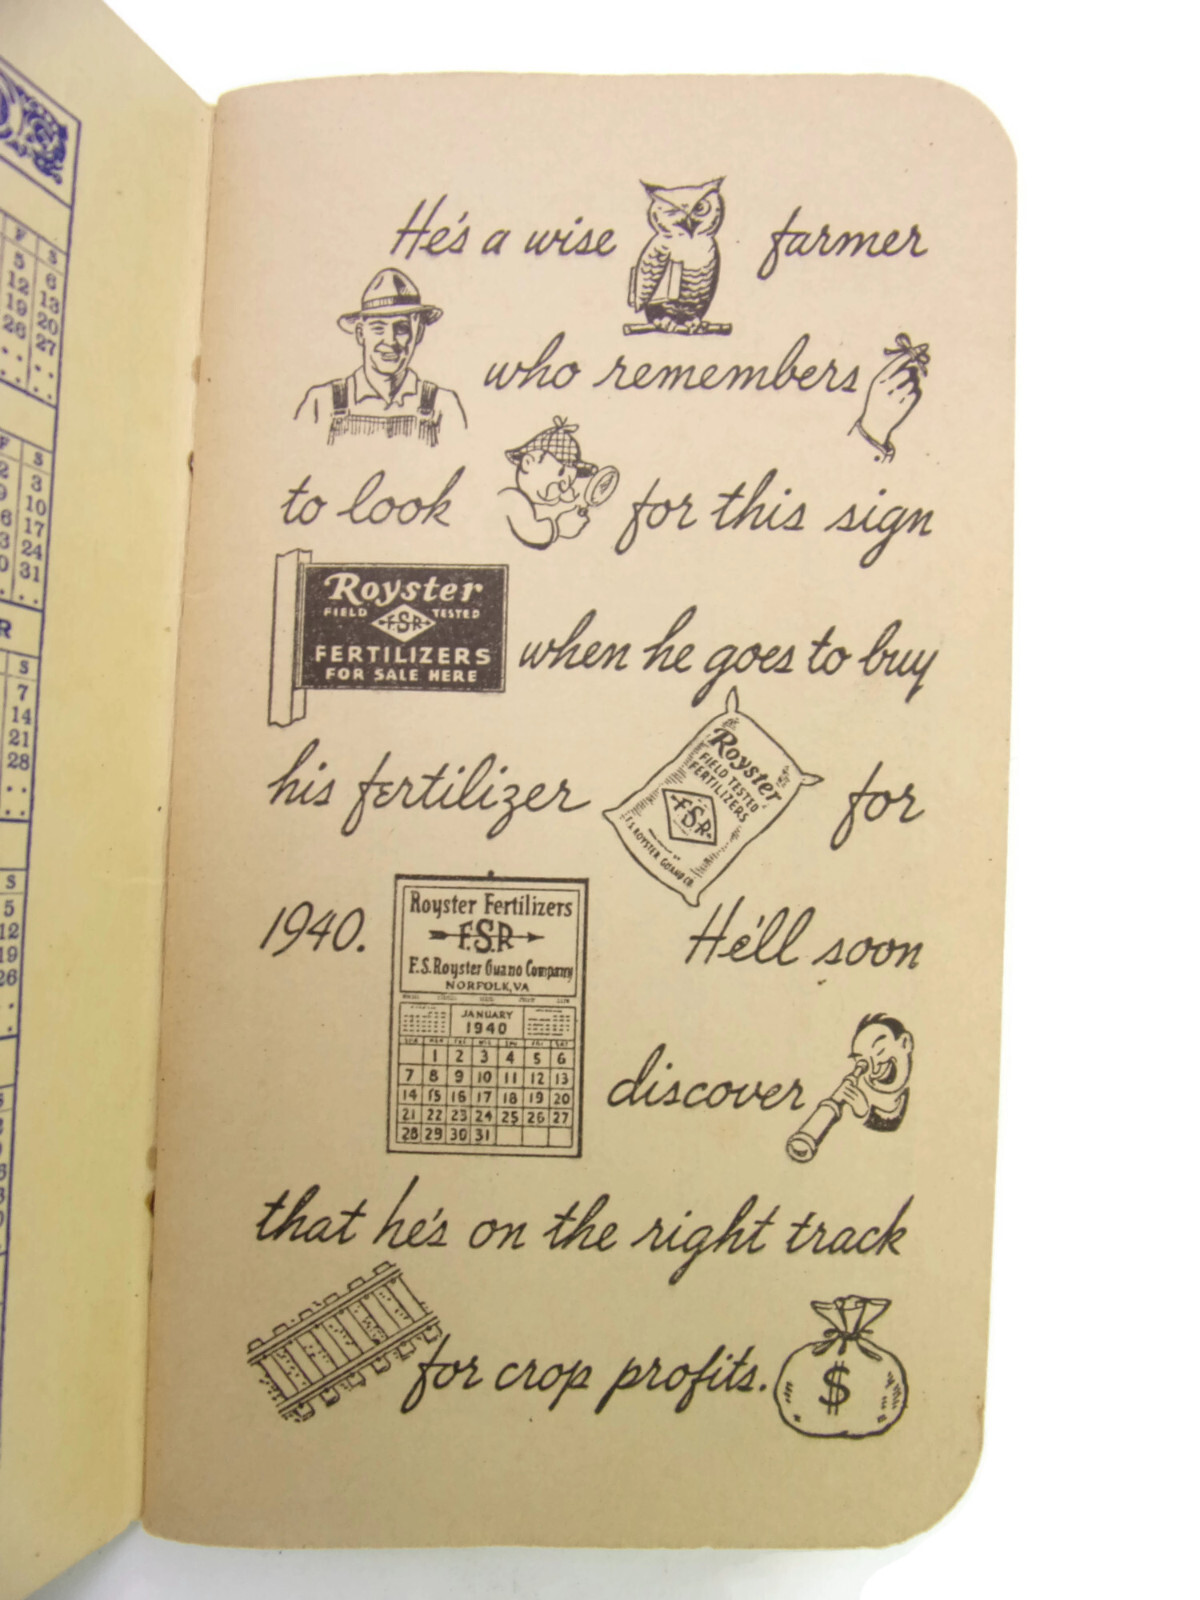 He's a wise farmer
who remembers
to look for this sign
Royster
FIELD FSR TESTED
FERTILIZERS
FOR SALE HERE
when he goes to buy
his fertilizer for
Royster
FIELD TESTED
FERTILIZERS
F.S.R.
F.S. ROYSTER GUANO CO.
1940. He'll soon
Royster Fertilizers
F.S.R
F.S. Royster Guano Company
NORFOLK, VA
JANUARY
1940
1 2 3 4 5 6
7 8 9 10 11 12 13
14 15 16 17 18 19 20
21 22 23 24 25 26 27
28 29 30 31
discover
that he's on the right track
for crop profits.
$
F S
5 6
12 13
19 20
26 27
F S
2 3
9 10
6 17
3 24
0 31
R
S
7
14
21
28
S
5
12
19
26